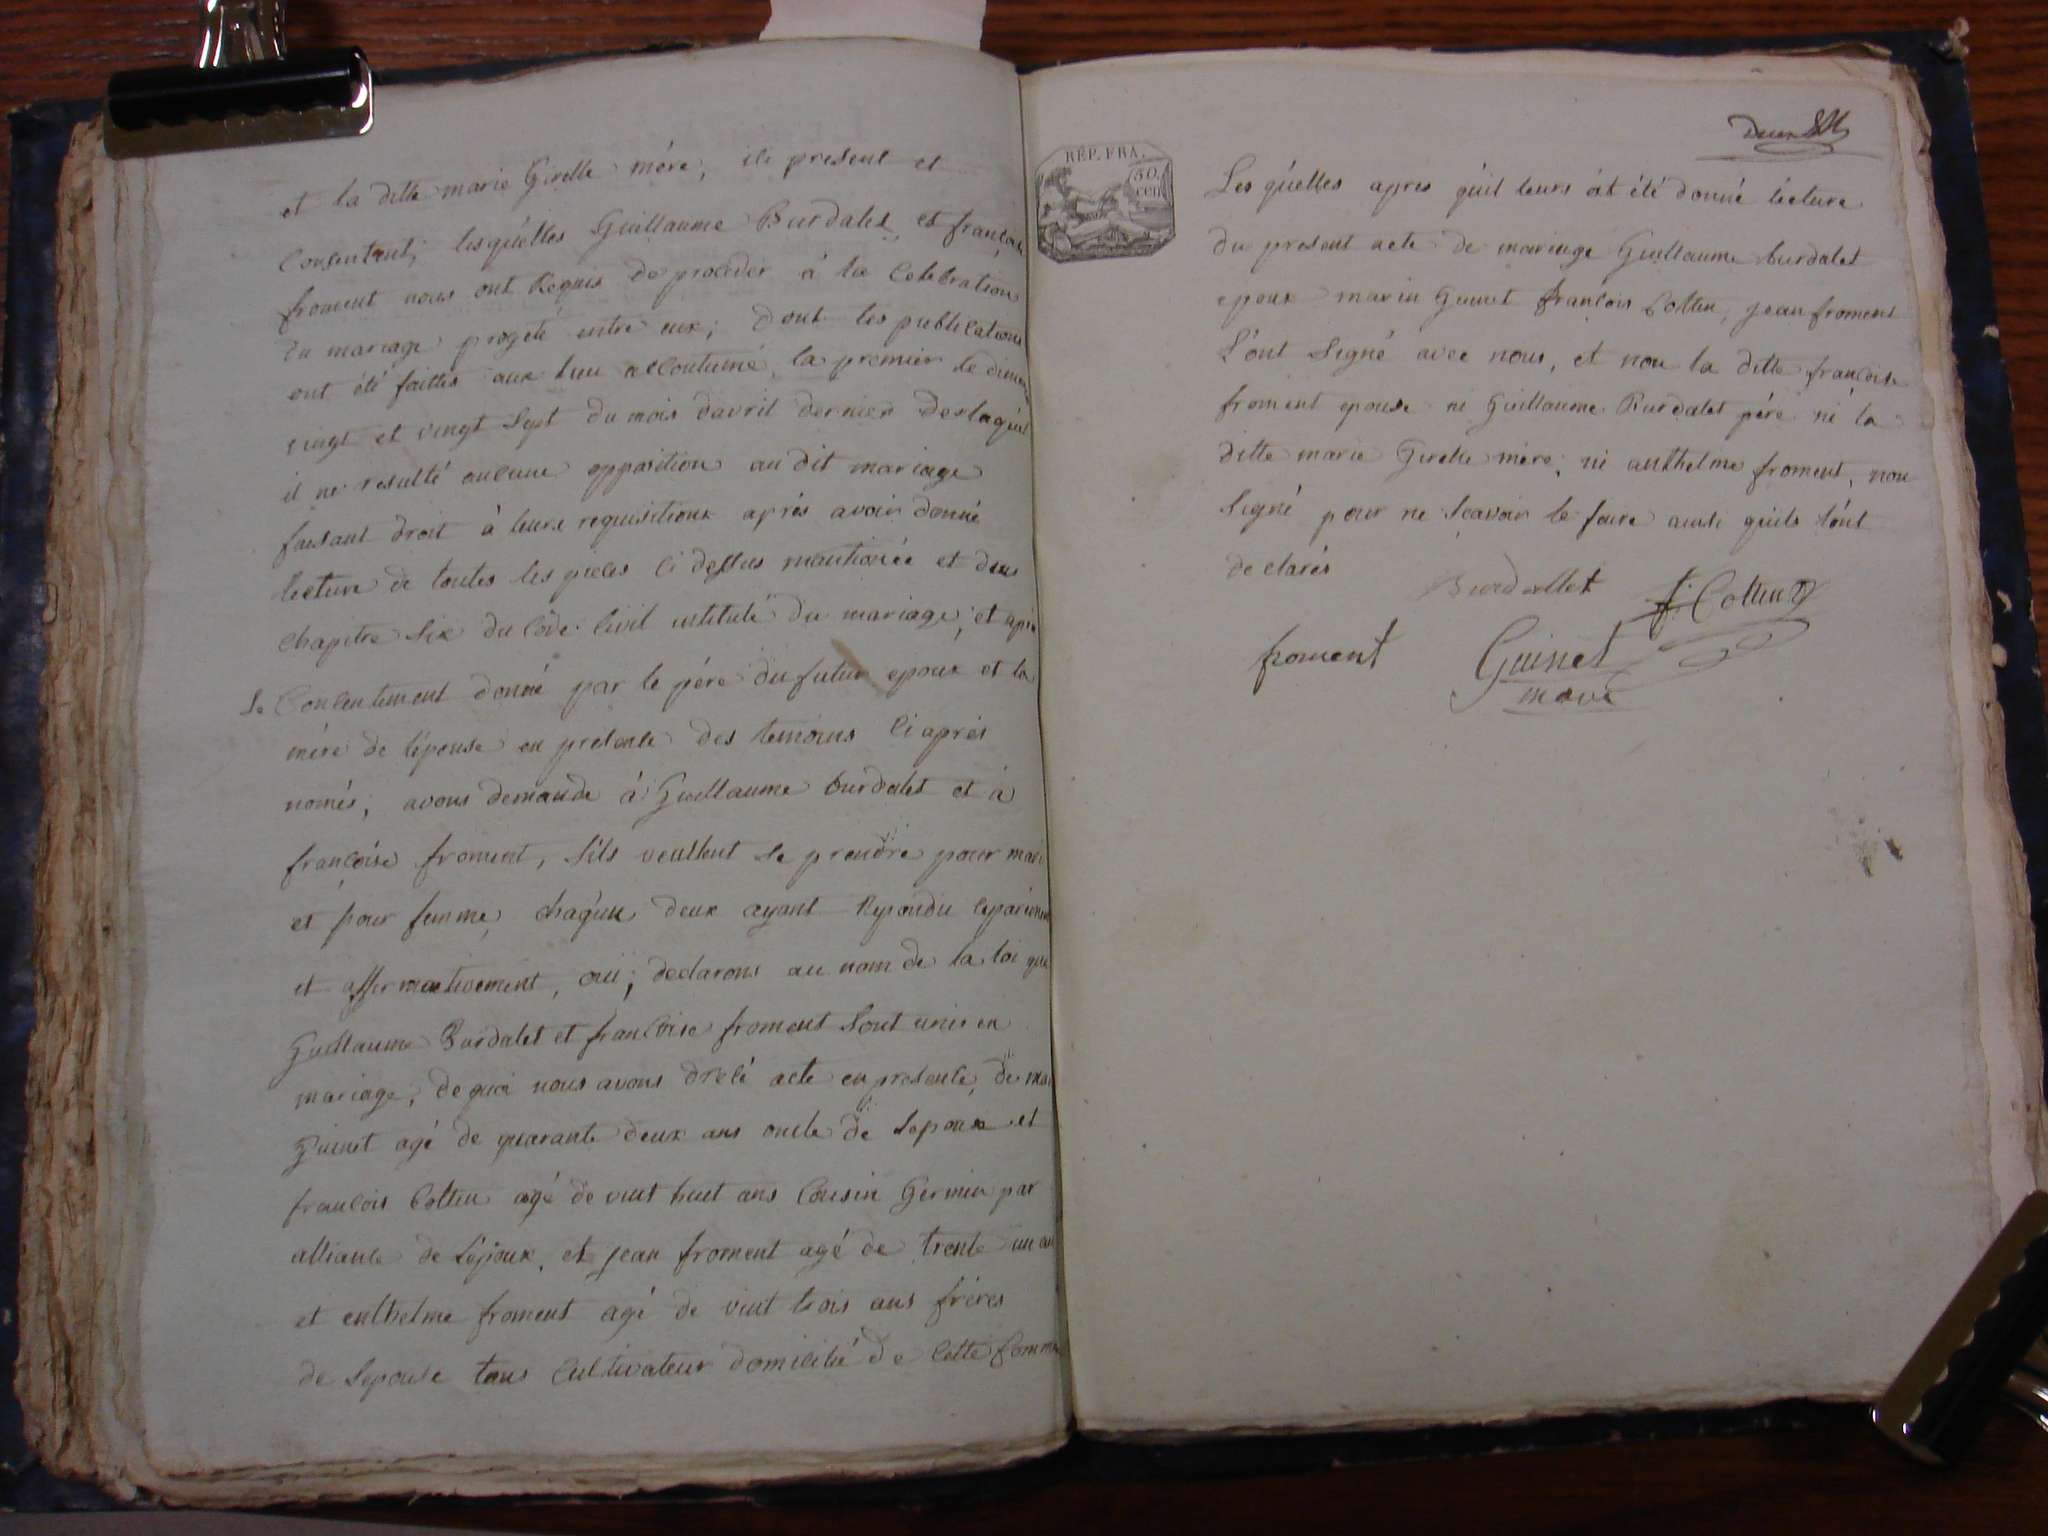 et la ditte marie Girelle mére, ici present et
Consentant, lesquelles Guillaume Burdalet, et francoise
froment nous ont Requis de proceder á la Celebration
du mariage progeté entre eux; dont les publications
ont été faittes aux lieu accoutumé, la premier le diman
vingt et vingt sept du mois davril dernier deslaquel
il ne resulté aucune opposition au dit mariage
faisant droit á leurs requisitions aprés avoir donné
lecture de toutes les pieces ci dessus mantionée et du
chapitre Six du Code Civil intitulé du mariage, et aprés
le Consentement donné par le pére du futur epoux et la
mére de lépouse en presence des temoins ci aprés
només; avons demande á Guillaume burdalet et á
francoise froment, Sils veullent se prendre pour mari
et pour femme, chaqun deux ayant Repondu separement
et affirmativement, oui; declarons au nom de la loi que
Guillaume Burdalet et francoise froment Sont unis en
mariage, de quoi nous avons drecé acte en presence, de
Guinet agé de quarante deux ans oncle de Lepoux et
francois Cottin agé de vint huit ans Cousin Germin par
alliance de Lépoux, et jean froment agé de trente un an
et enthelme froment agé de vint trois ans fréres
de Lepouse tous Cultivateur domicilié de cette Commu
REP. FRA.
50. cen.
Les quelles apres quil leurs ót été donné lecture
du present acte de mariage Guillaume burdalet
epoux marin Guinet francois Cottin, jean froment
L'ont Signé avec nous, et non la ditte francoise
froment epouse ni Guillaume Burdalet pére ni la
ditte marie Girelle mére, ni anthelme froment, non
Signé pour ne Scavoir le faire ainsi quils lónt
declarés
Burdallet f. Cottin
froment Guinet